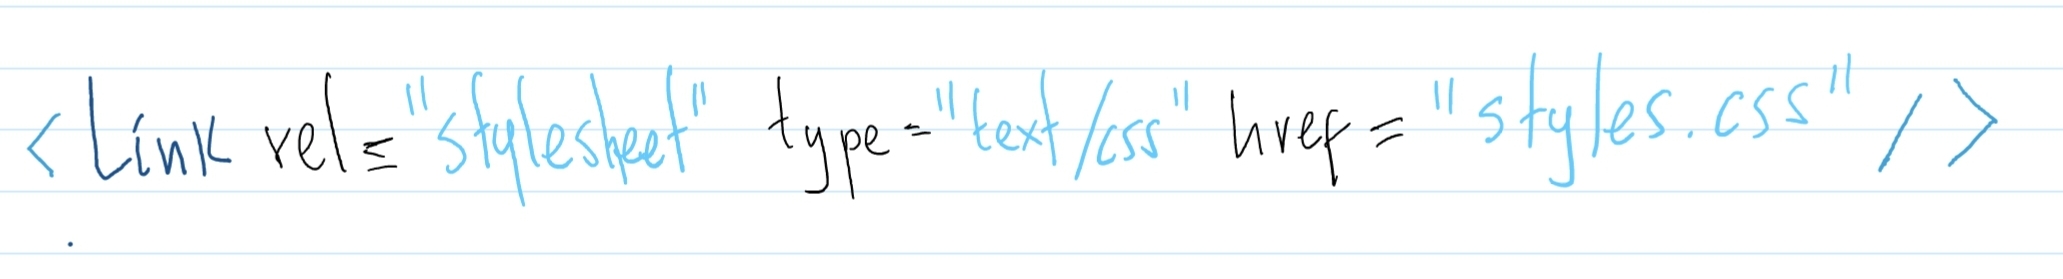 <link rel="stylesheet" type="text/css" href="styles.css" />